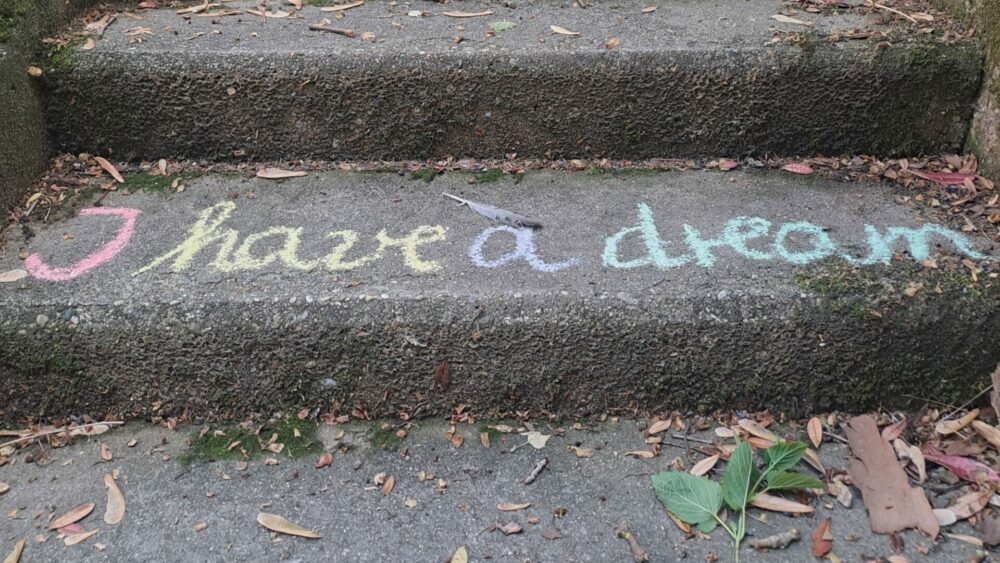 I have a dream